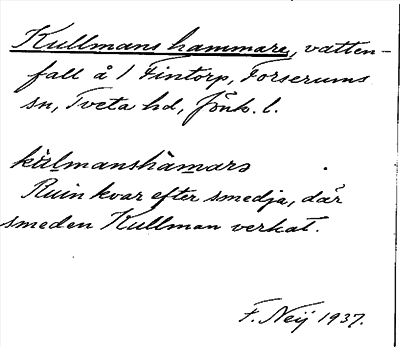 Kullmans hammare, vatten-
fall å 1 Fintorp, Forserums
sn, Tveta hd, Jönk. l.
kulmanshamarə
Ruin kvar efter smedja, där
smeden Kullman verkat.
F. Neij 1937.